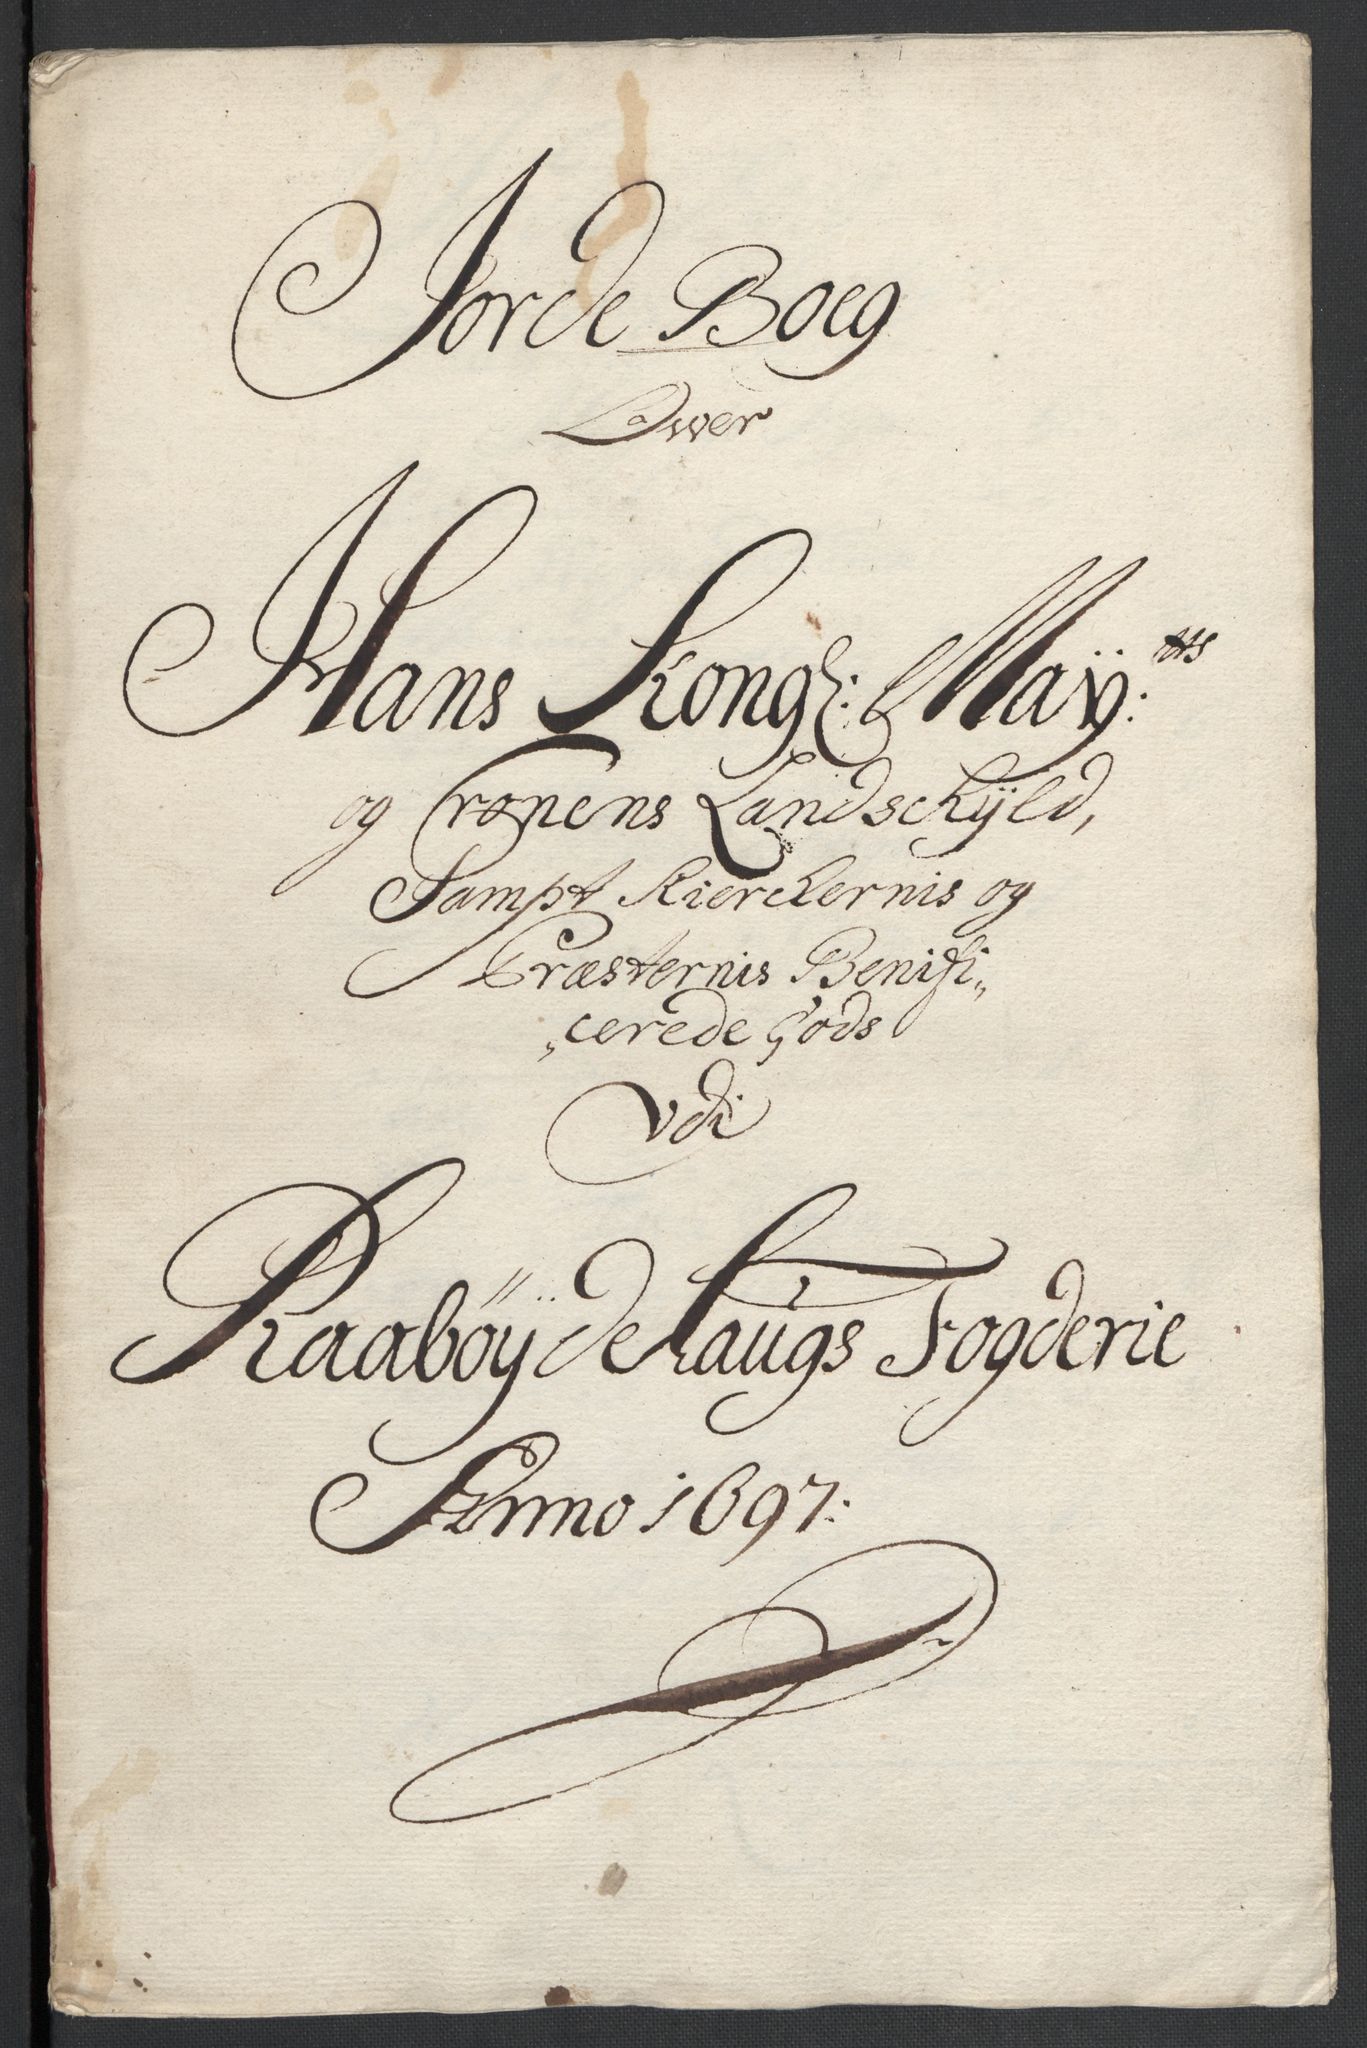 Jorde Boeg
Ower
Hans Kongl: Maÿ:tts
og Cronens Landschÿld,
Sampt Kierckernis og
Præsternis Benifi„
„cerede Gods
Vdi
Raaböÿdelaugs Fogderie
Anno 1697: